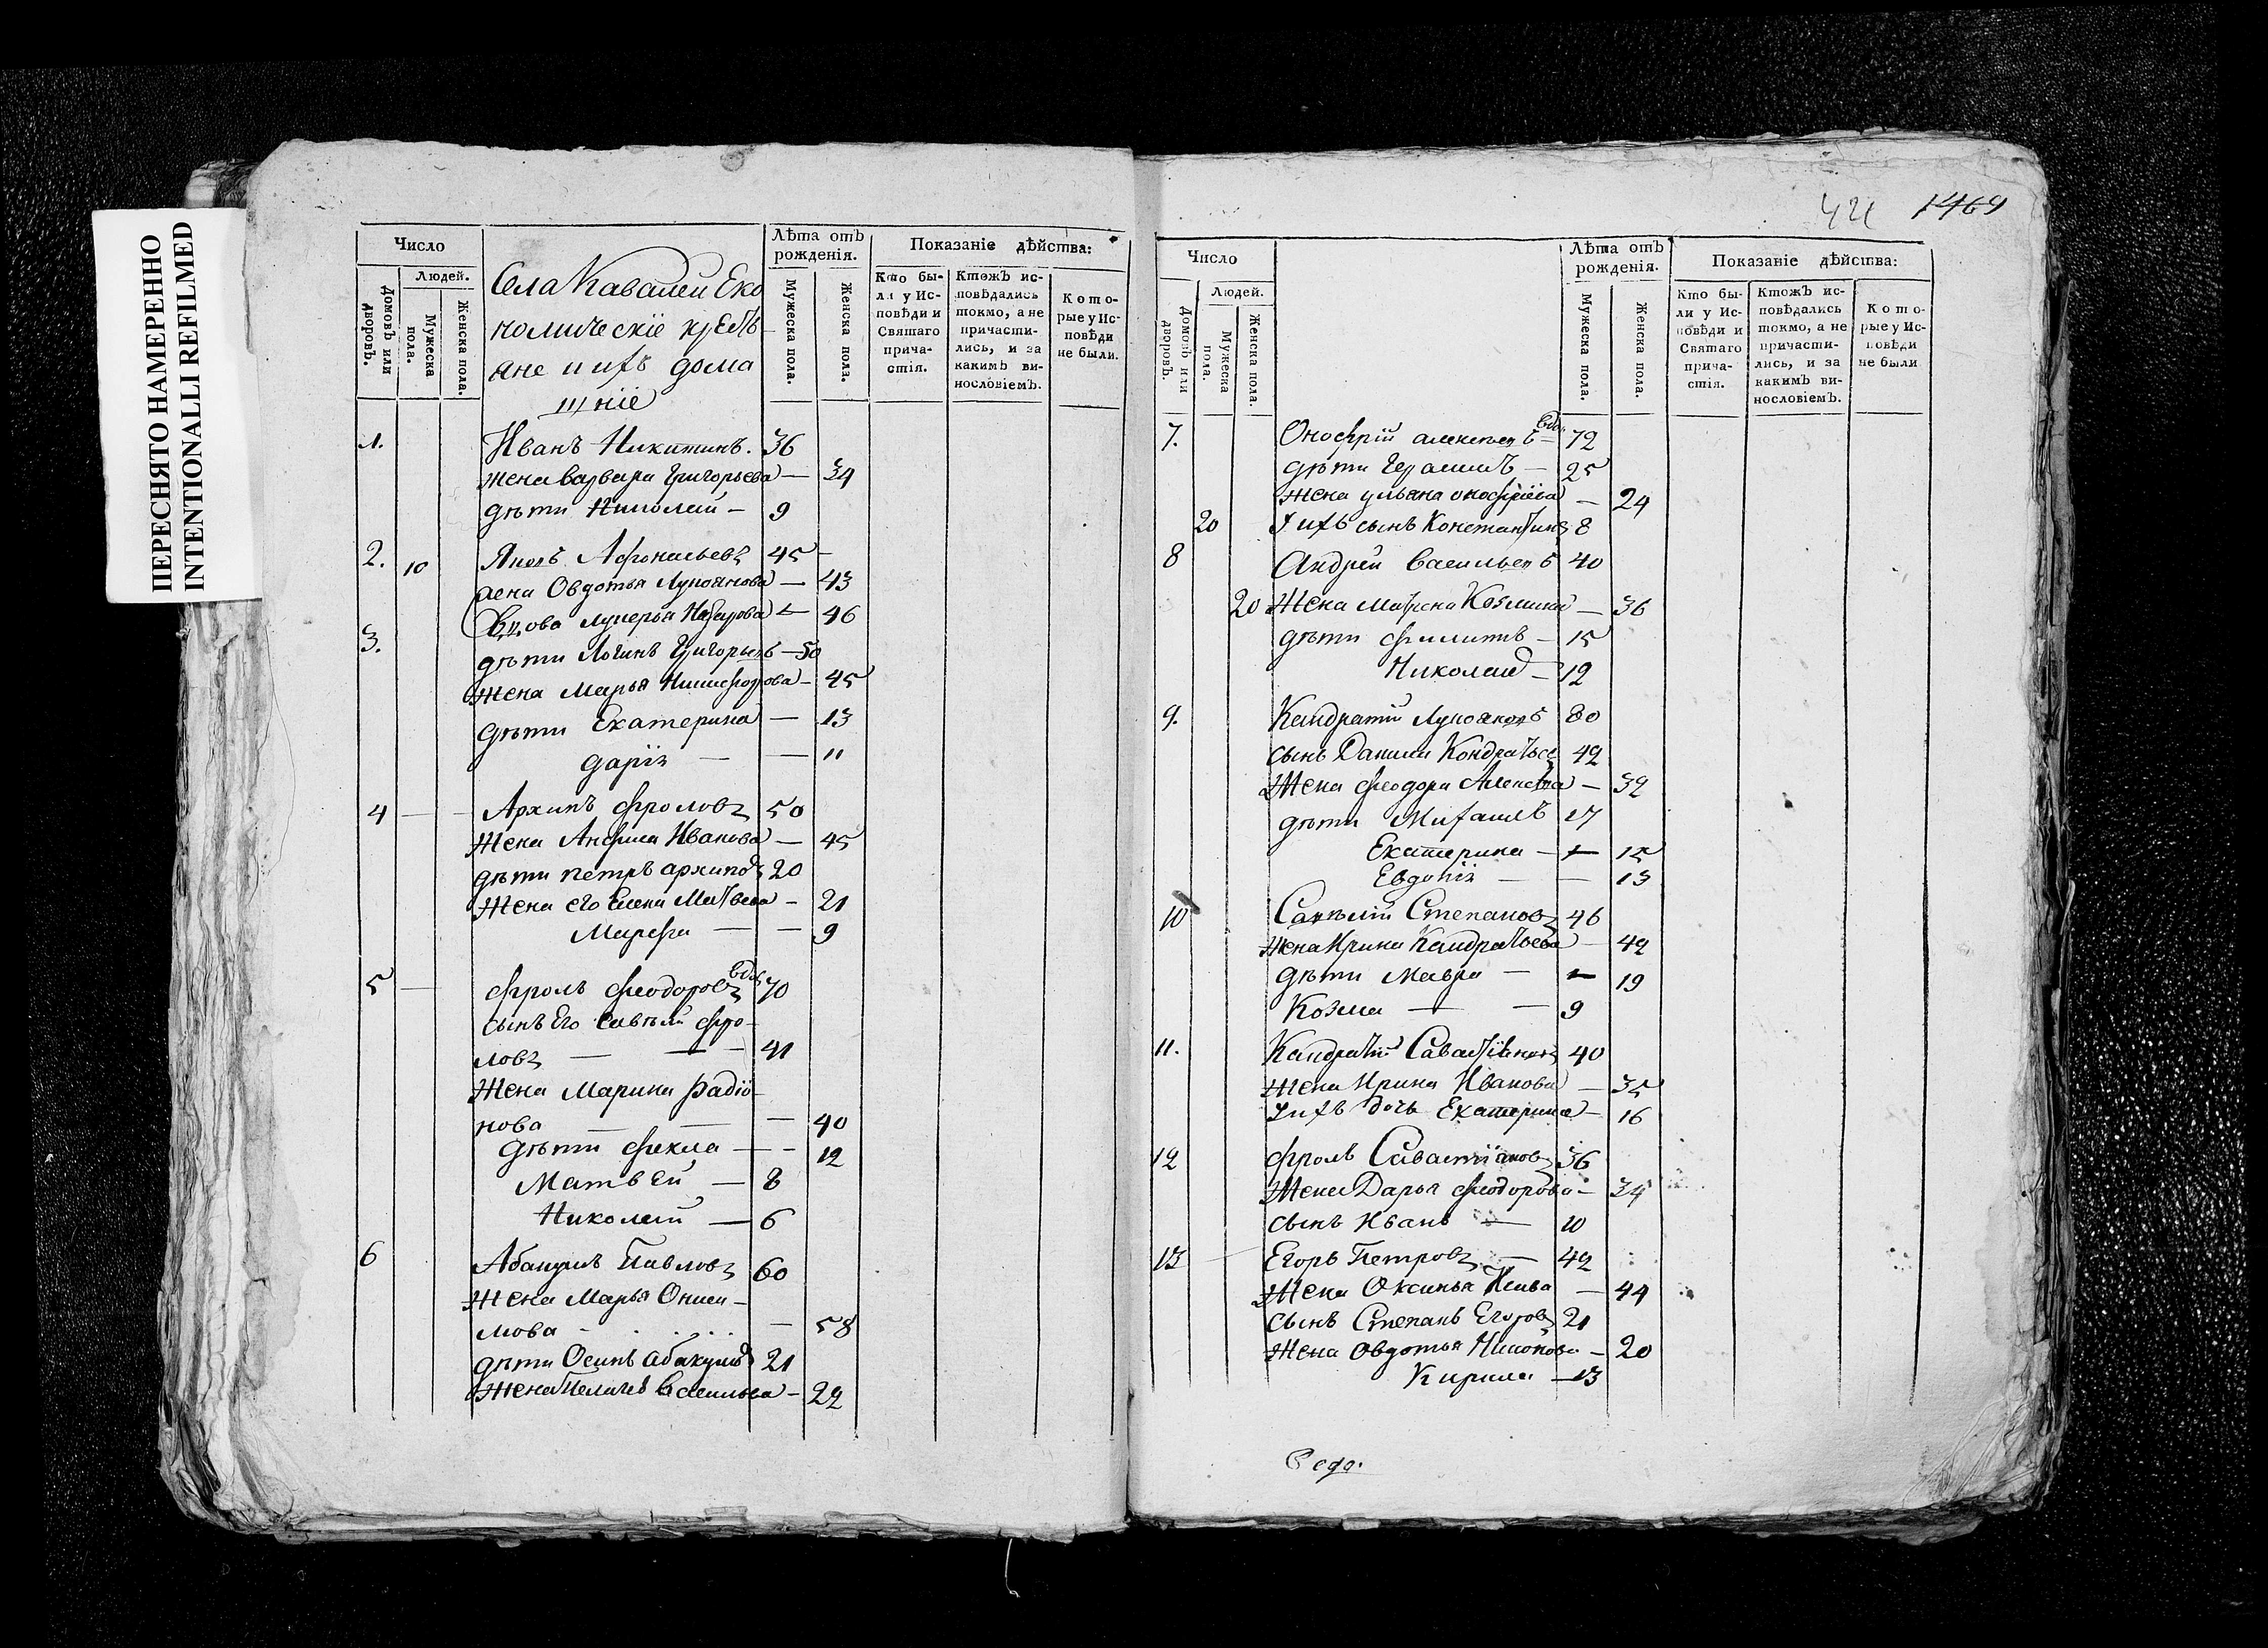 ПЕРЕСНЯТО НАМЕРЕННО
INTENTIONALLI REFILMED
Число
Людей.
Домовъ или дворовъ.
Мужеска пола.
Женска пола.
Села Кавалей Еко
номическіе крестъ
яне и ихъ дома
шніе
Лѣта отъ рожденія.
Мужеска пола.
Женска пола.
Показаніе дѣйства:
Кто бы-
ли у Ис-
повѣди и
Святаго
прича-
стія.
Ктожъ ис-
повѣдались
токмо, а не
причасти-
лись, и за
какимъ ви-
нословіемъ.
Кото-
рые у Ис-
повѣди
не были.
1. Иванъ Никитинъ. 36
жена варвара Григорьева — 34
дѣти Николай — 9
2. 10 Яковъ Афонасьевъ 45 —
жена Овдотья Лукоянова — 43
3. Вдова Лукерья Назарова — 46
дѣти Логинъ Григорьевъ — 50
жена Марья Никифорова — 45
дѣти Екатерина — 13
дарія — — 11
4 — Архипъ фроловъ 50
жена Анфиса Иванова — 45
дѣти петръ архиповъ 20
жена его Елена Матвева — 21
Марфа — — 9
5 — фролъ феодоровъ вдов 70
сынъ Его Савелій фро-
ловъ — — — 41
Жена Марина радіо-
нова — — — 40
дѣти фекла — — 12
Матвей — 8
Николай — 6
6 Абакумъ Павловъ 60
Жена МарьяОниси-
мова — — 58
дѣти Осипъ абакумовъ 21
жена Пелагея Васильева — 22
44 1469
Число
Людей.
Домовъ или дворовъ.
Мужеска пола.
Женска пола.
Лѣта отъ рожденія.
Мужеска пола.
Женска пола.
Показаніе дѣйства:
Кто бы-
ли у Ис-
повѣди и
Святаго
прича-
стія.
Ктожъ ис-
повѣдались
токмо, а не
причасти-
лись, и за
какимъ ви-
нословіемъ.
Кото-
рые у Ис-
повѣди
не были
7. Оноѳрій алексѣевъ вдов 72
дѣти Герасимъ — 25
жена ульяна онофріева — 24
20 У ихъ сынъ Константинъ 8
8 Андрей Васильевъ 40
20 Жена Матрена Козмина — 36
дѣти филипъ — 15
Николай — 12
9. Кандратій Лукояновъ 80
сынъ Данила Кондратьев 42
Жена феодора Алексева — 32
дѣти Михаилъ 17
Екатерина — — 15
Евдокія — — 13
10 Савелій Степановъ 46
жена Ирина Кандратьева — 42
дѣти Мавра — — 19
Козма — — 9
11. Кандратій Савастіяновъ 40
Жена Ирина Иванова — 35
У ихъ дочь Екатерина — 16
12 фролъ Савастіановъ 36
Жена Дарья феодорова — 34
сынъ Иванъ — 10
13 Егоръ Петровъ — 42
Жена Оксинья — 44
сынъ Степанъ Егоровъ 21
Жена Овдотья — 20
Кирила — 13